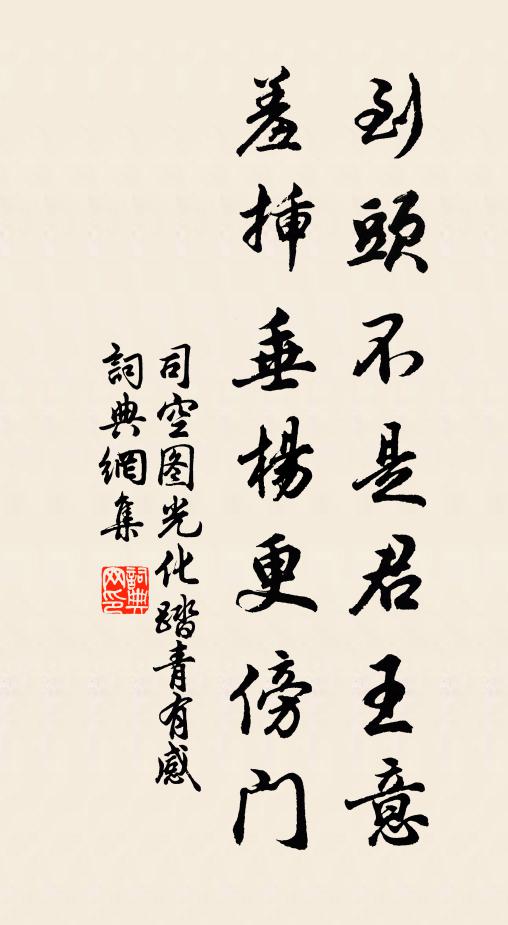 到頭不是君王意
羞插垂楊更傍門
司空图光化踏青有感
詞典網集
詞典网印